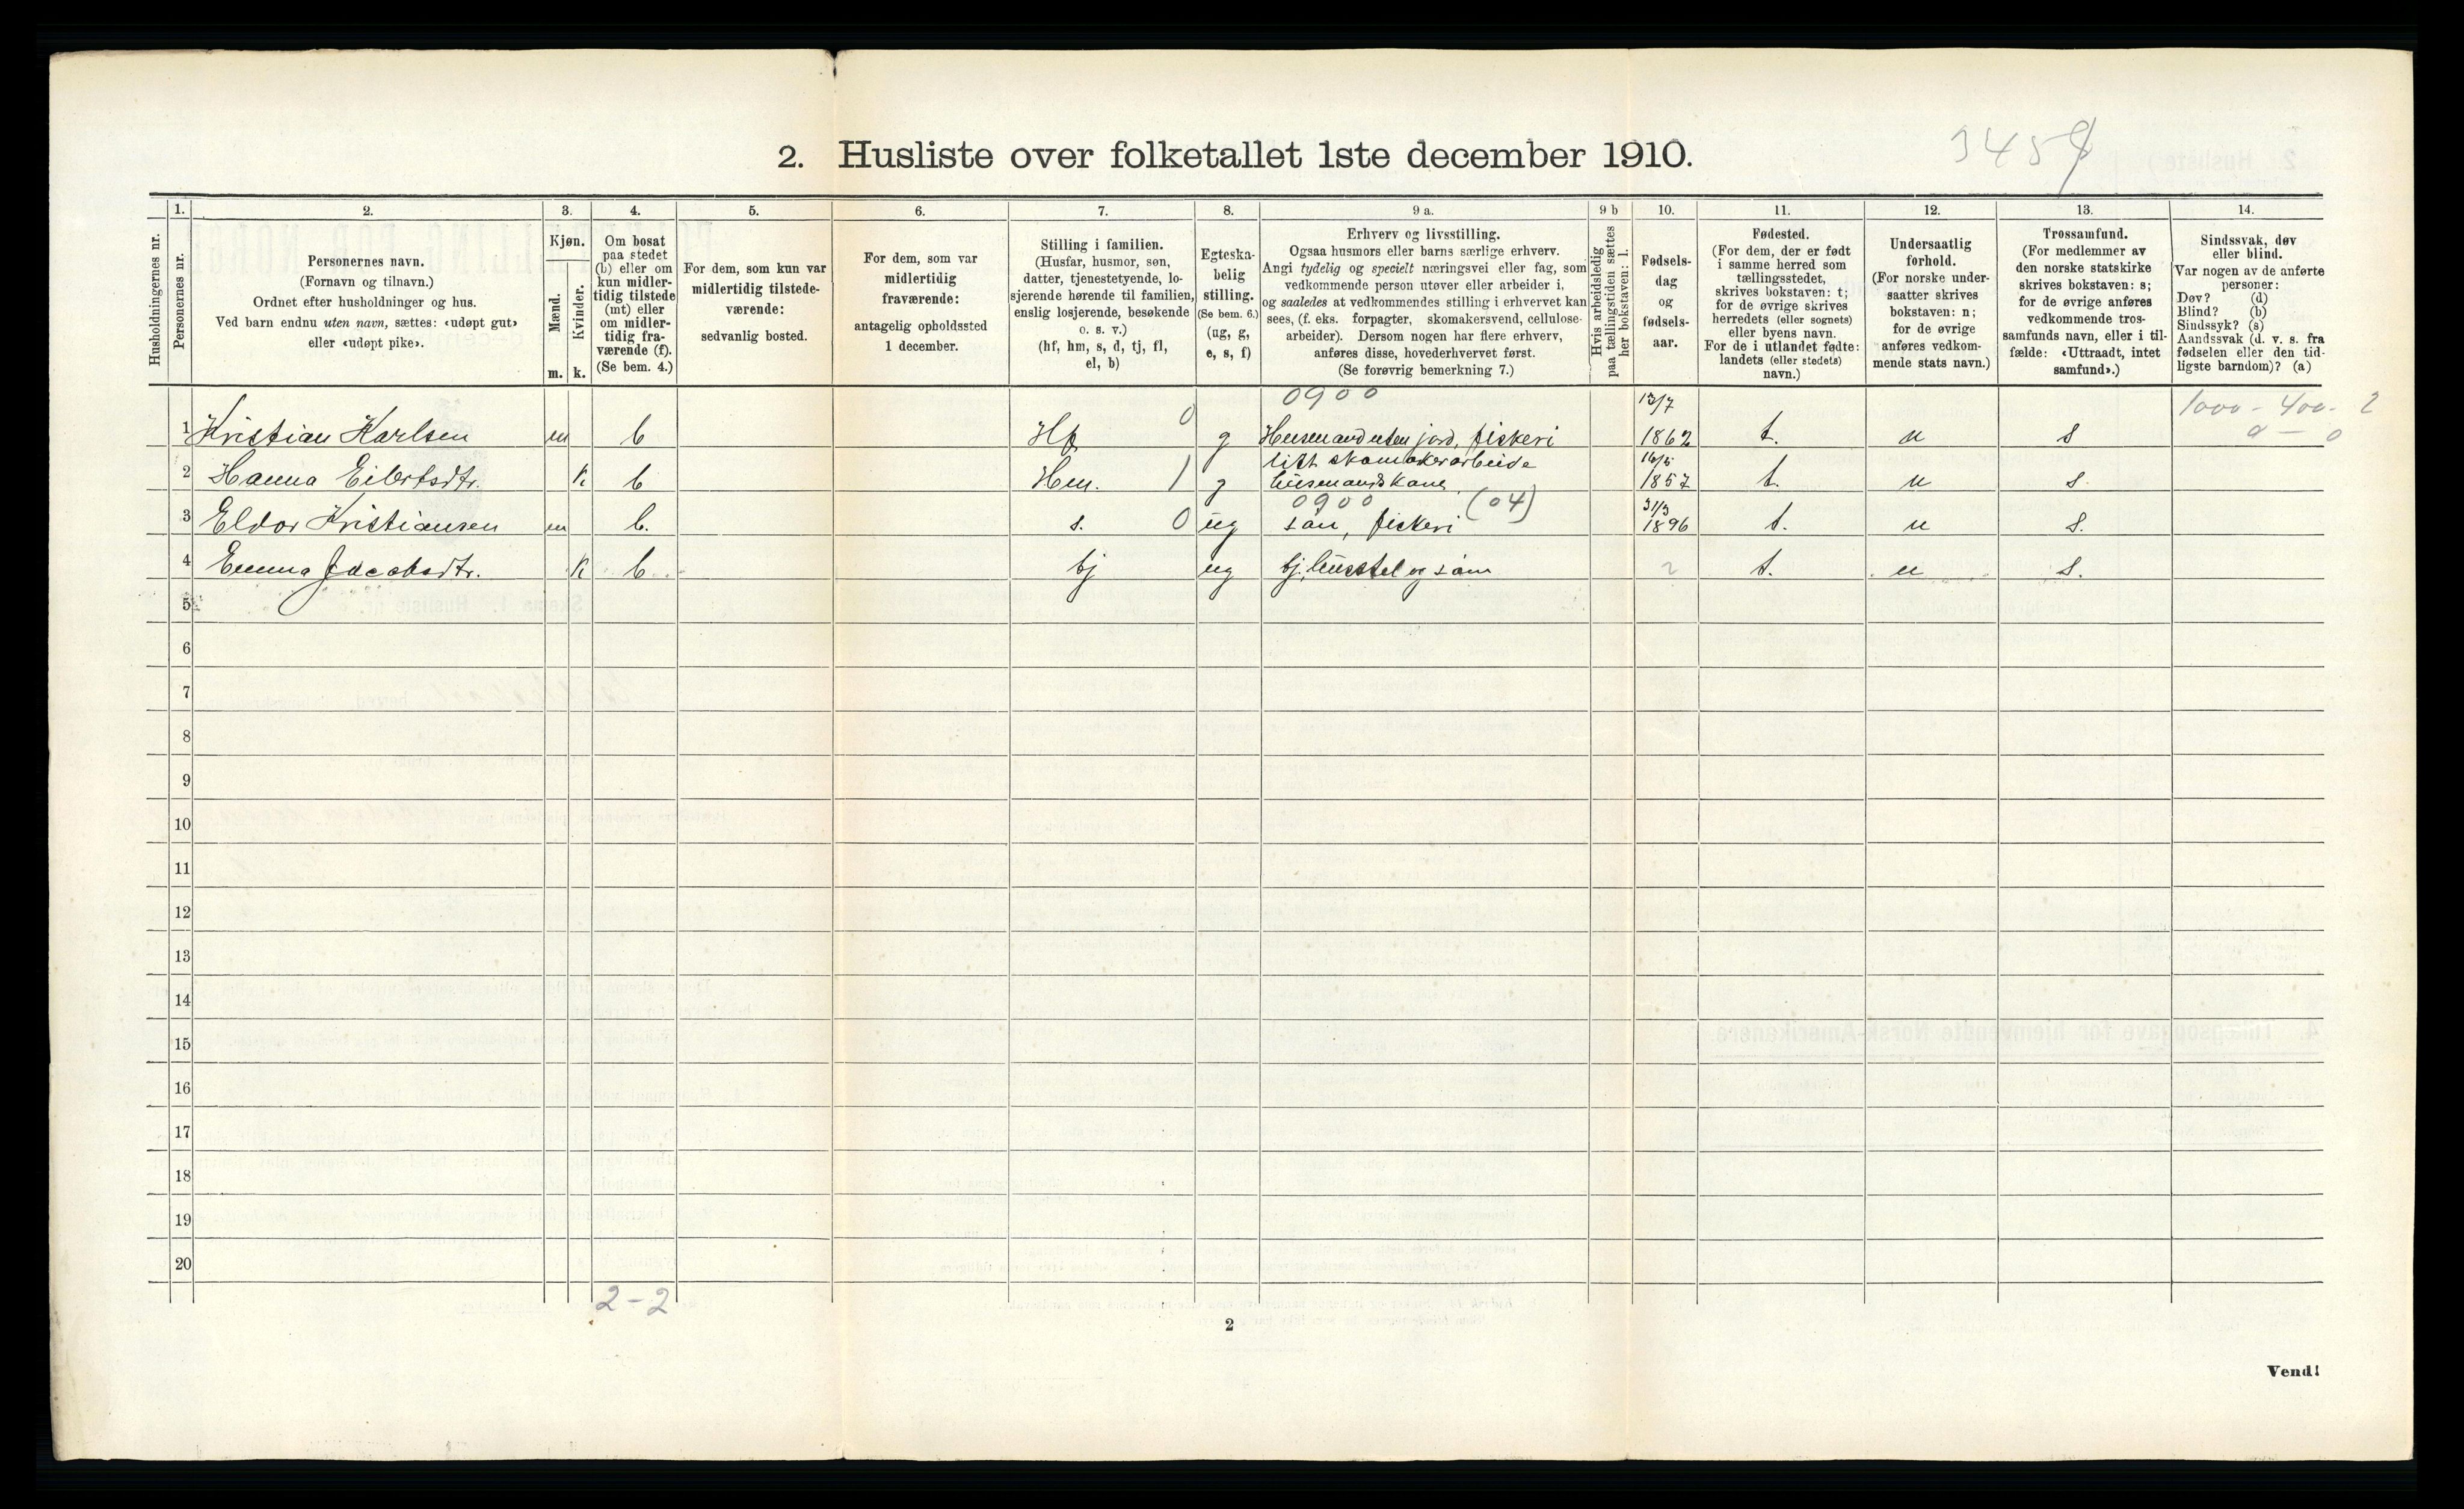 2. Husliste over folketallet 1ste december 1910.
3458
Husholdningernes nr.
1.
Personernes nr.
2.
Personernes navn.
(Fornavn og tilnavn.)
Ordnet efter husholdninger og hus.
Ved barn endnu uten navn, sættes: «udøpt gut»
eller «udøpt pike».
3.
Kjøn.
Mænd.
Kvinder.
m. k.
4.
Om bosat
paa stedet
(b) eller om
kun midler-
tidig tilstede
(mt) eller
om midler-
tidig fra-
værende (f).
(Se bem. 4.)
5.
For dem, som kun var
midlertidig tilstede-
værende:
sedvanlig bosted.
6.
For dem, som var
midlertidig
fraværende:
antagelig opholdssted
1 december.
7.
Stilling i familien.
(Husfar, husmor, søn,
datter, tjenestetyende, lo-
sjerende hørende til familien,
enslig losjerende, besøkende
o. s. v.)
(hf, hm, s, d, tj, fl,
el, b)
8.
Egteska-
belig
stilling.
(Se bem. 6.)
(ug, g,
e, s, f)
9 a.
Erhverv og livsstilling.
Ogsaa husmors eller barns særlige erhverv.
Angi tydelig og specielt næringsvei eller fag, som
vedkommende person utøver eller arbeider i,
og saaledes at vedkommendes stilling i erhvervet kan
sees, (f. eks. forpagter, skomakersvend, cellulose-
arbeider). Dersom nogen har flere erhverv,
anføres disse, hovederhvervet først.
(Se forøvrig bemerkning 7.)
9 b
Hvis arbeidsledig
paa tællingstiden sættes
her bokstaven: l.
10.
Fødsels-
dag
og
fødsels-
aar.
11.
Fødested.
(For dem, der er født
i samme herred som
tællingsstedet,
skrives bokstaven: t;
for de øvrige skrives
herredets (eller sognets)
eller byens navn.
For de i utlandet fødte:
landets (eller stedets)
navn.)
12.
Undersaatlig
forhold.
(For norske under-
saatter skrives
bokstaven: n;
for de øvrige
anføres vedkom-
mende stats navn.)
13.
Trossamfund.
(For medlemmer av
den norske statskirke
skrives bokstaven: s;
for de øvrige anføres
vedkommende tros-
samfunds navn, eller i til-
fælde: «Uttraadt, intet
samfund».)
14.
Sindssvak, døv
eller blind.
Var nogen av de anførte
personer:
Døv? (d)
Blind? (b)
Sindssyk? (s)
Aandssvak (d. v. s. fra
fødselen eller den tid-
ligste barndom)? (a)
0900 13/7 1000 - 400 - 2
1 Kristian Karlsen m b Hf 0 g Husmand uten jord, fiskeri 1862 t. n s 0 — 0
litt skomakerarbeide 16/5
2 Hanna Eilertsdtr. k b Hm. 1 g husmandskone 1857 t. n s.
0900 (04) 31/3
3 Eldor Kristiansen m b. s. 0 ug søn, fiskeri 1896 t. n s.
4 Emma Jacobsdtr. k b tj ug tj. husstel og søm 2 t. n s.
5
6
7
8
9
10
11
12
13
14
15
16
17
18
19
20
2 - 2
2
Vend!